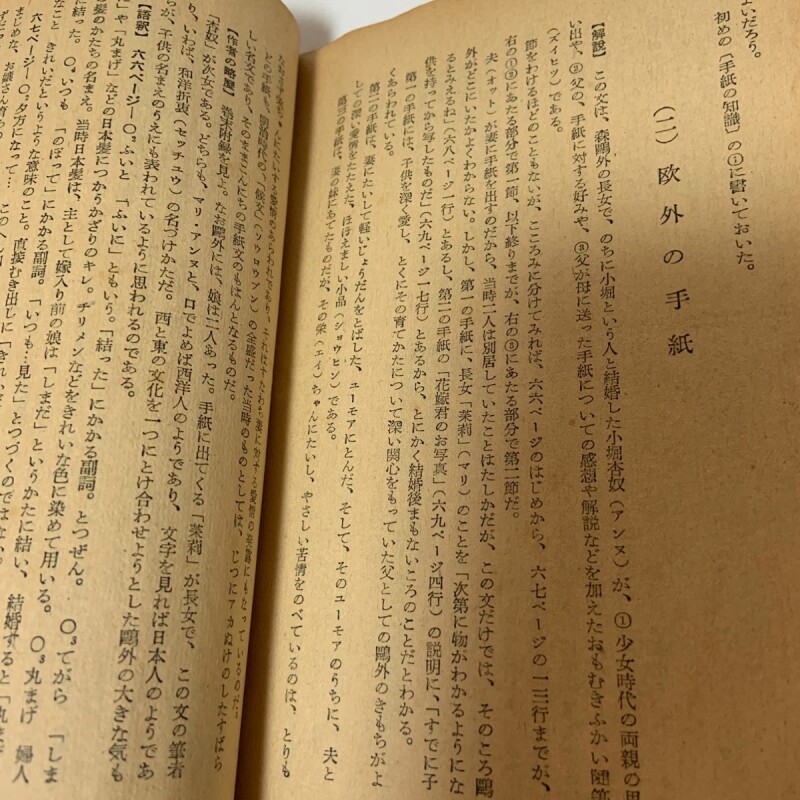 よいだろう。
初めの〔手紙の知識〕の①に書いておいた。
（二）欧外の手紙
【解説】この文は、森鷗外の長女で、のちに小堀という人と結婚した小堀杏奴（アンヌ）が、①少女時代の両親の思
い出や、②父の、手紙に対する好みや、③父が母に送った手紙についての感想や解説などを加えたおもむきふかい随筆
（ズイヒツ）である。
節をわけるほどのこともないが、こころみに分けてみれば、六六ページのはじめから、六七ページの一三行までが、
右の①②にあたる部分で第一節、以下終りまでが、右の③にあたる部分で第二節だ。
夫（オット）が妻に手紙を出すのだから、当時二人は別居していたことはたしかだが、この文だけでは、そのころ鷗
外がどこにいたかよくわからない。しかし、第一の手紙に、長女「茉莉」（マリ）のことを「次第に物がわかるようにな
るとみえるね」（六八ページ一行）とあるし、第二の手紙の「花嫁君のお写真」（六九ページ四行）の説明に、「すでに子
供を持ってから写したものだ」（六九ページ一七行）とあるから、とにかく結婚後まもないころのことだとわかる。
第一の手紙には、子供を深く愛し、とくにその育てかたについて深い関心をもっていた父としての鷗外のきもちがよ
くあらわれている。
第二の手紙は、妻にたいして軽いじょうだんをとばした、ユーモアにとんだ、そして、そのユーモアのうちに、夫と
しての深い愛情をたたえた、ほほえましい小品（ショウヒン）である。
第三の手紙は、妻の妹にあてたものだが、その栄（エイ）ちゃんにたいし、やさしい苦情をのべているのは、とりも
なおさず栄ちゃんにたいする愛情のあらわれであり、それはすなわち妻に対する愛情の表露にもなっているのだ。
どの手紙も、明治時代の「候文」（ソウロウブン）の全盛だった当時のものとしては、じつにアカぬけのしたすばら
しい名文であり、そのままこんたちの手紙文のもはんとなるものだ。
【作者の略歴】巻末附録を見よ。なお鷗外には、娘は二人あった。手紙に出てくる「茉莉」が長女で、この文の筆者
「杏奴」が次女である。どちらも、マリ・アンヌと、口でよめば西洋人のようであり、文字を見れば日本人のようであ
り、いわば、和洋折衷（セッチュウ）の名づけかただ。西と東の文化を一つにとけ合わせようとした鷗外の大きな気も
ちが、子供の名まえのうえにも表われているように思われるのである。
【語釈】六六ページ―〇²ふいと 「ふいに」ともいう。「結った」にかかる副詞。とつぜん。〇³てがら 「しま
だ」や「丸まげ」などの日本髪につかうかざりのキレ。チリメンなどをきれいな色に染めて用いる。〇³丸まげ 婦人
の髪のかたちの名まえ。当時日本髪は、主として嫁入り前の娘は「しまだ」というかたに結い、結婚すると「丸ま
結った。〇⁴いつも 「のぼって」にかかる副詞。「いつも…見た」とつづくのではない。
なこと きれいだというような意味のこと。直接むき出しに「きれい
まじめな、お嬢さん育ちの
〇夕方になって…